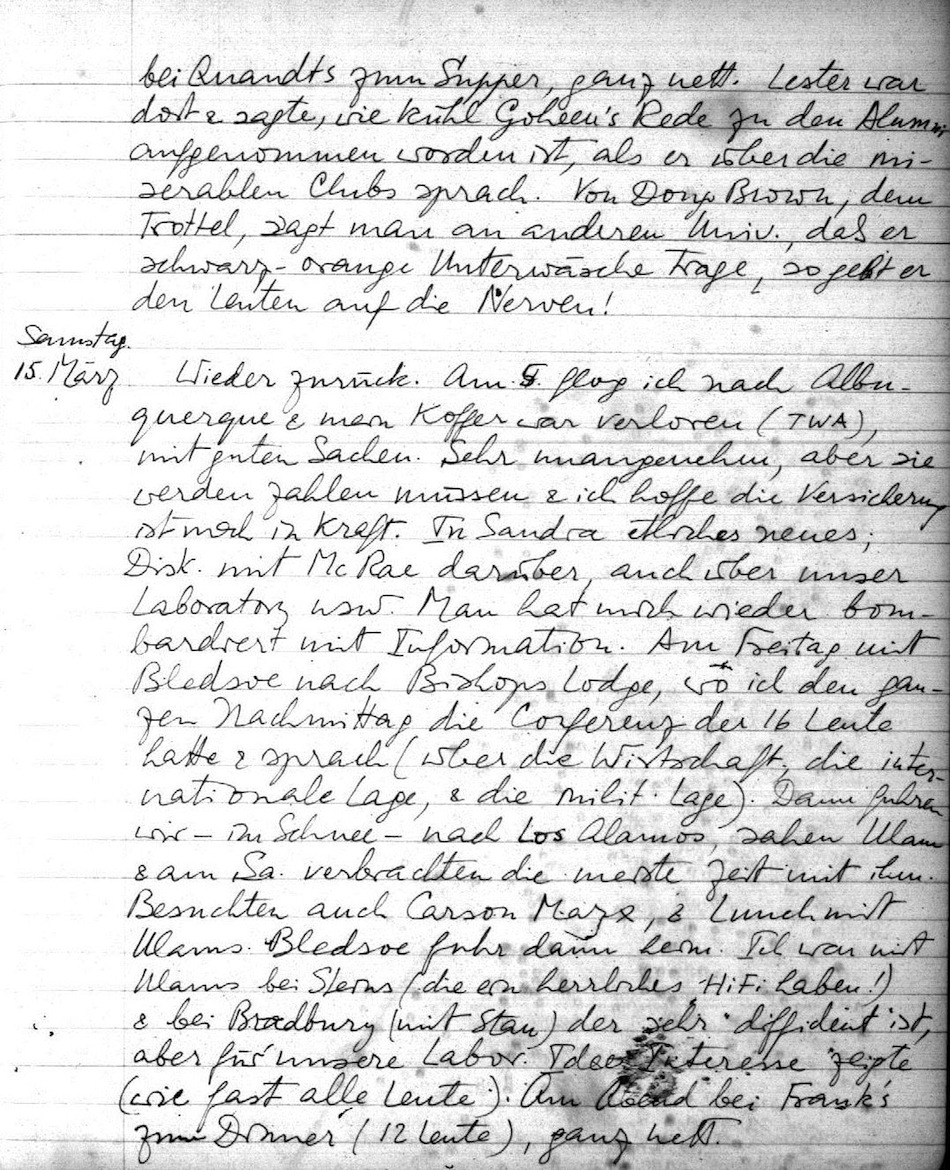 bei Quandts zum Supper, ganz nett. Lester war
dort & sagte, wie kühl Goheen's Rede zu den Alumni
aufgenommen worden ist, als er über die mi-
serablen Clubs sprach. Von Doug Brown, dem
Trottel, sagt man an anderen Univ., daß er
schwarz-orange Unterwäsche trage, so geht er
den Leuten auf die Nerven!
Samstag.
15. März Wieder zurück. Am 5. flog ich nach Albu-
querque & mein Koffer war verloren (TWA),
mit guten Sachen. Sehr unangenehm, aber sie
werden zahlen müssen & ich hoffe die Versicherung
ist noch in Kraft. In Sandia etliches neues;
Disk. mit McRae darüber, auch über unser
Laboratory usw. Man hat mich wieder bom-
bardiert mit Information. Am Freitag mit
Bledsoe nach Bishops Lodge, wo ich den gan-
zen Nachmittag die Conferenz der 16 Leute
hatte & sprach (über die Wirtschaft, die inter-
nationale Lage, & die milit. Lage). Dann fuhren
wir – im Schnee – nach Los Alamos, sahen Ulam
& am Sa. verbrachten die meiste Zeit mit ihm.
Besuchten auch Carson Mark, & Lunch mit
Ulams. Bledsoe fuhr dann heim. Ich war mit
Ulams bei Steins (die ein herrliches HiFi haben!)
& bei Bradbury (mit Stan) der sehr diffident ist,
aber für unsere Labor. Idee Interesse zeigte
(wie fast alle Leute). Am Abend bei Frank's
zum Dinner (12 Leute), ganz nett.